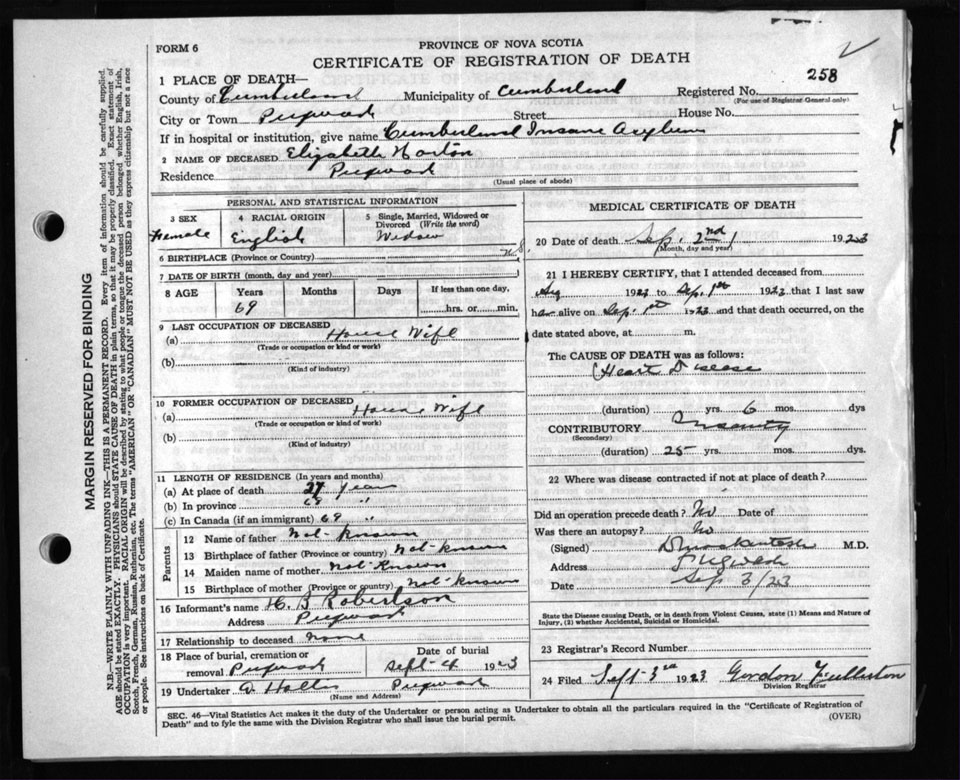 FORM 6
PROVINCE OF NOVA SCOTIA
CERTIFICATE OF REGISTRATION OF DEATH
258
1 PLACE OF DEATH—
County of Cumberland Municipality of Cumberland Registered No.
(For use of Registrar General only)
City or Town Pugwash Street House No.
If in hospital or institution, give name Cumberland Insane Asylum
2 NAME OF DECEASED Elizabeth Horton
Residence Pugwash
(Usual place of abode)
PERSONAL AND STATISTICAL INFORMATION
3 SEX 4 RACIAL ORIGIN 5 Single, Married, Widowed or Divorced (Write the word)
Female English Widow
6 BIRTHPLACE (Province or Country) N S
7 DATE OF BIRTH (month, day and year)
8 AGE Years Months Days If less than one day,
69 hrs. or min.
9 LAST OCCUPATION OF DECEASED
(a) House Wife
(Trade or occupation or kind or work)
(b)
(Kind of industry)
10 FORMER OCCUPATION OF DECEASED
(a) House Wife
(Trade or occupation or kind of work)
(b)
(Kind of industry)
11 LENGTH OF RESIDENCE (In years and months)
(a) At place of death 27 years
(b) In province 69 "
(c) In Canada (if an immigrant) 69 "
Parents
12 Name of father Not Known
13 Birthplace of father (Province or country) Not Known
14 Maiden name of mother Not Known
15 Birthplace of mother (Province or country) Not Known
16 Informant's name H. Robertson
Address Pugwash
17 Relationship to deceased None
18 Place of burial, cremation or removal Pugwash Date of burial Sept 4 1923
19 Undertaker Pugwash
(Name and Address)
MEDICAL CERTIFICATE OF DEATH
20 Date of death Sep. 2nd 1923
(Month, day and year)
21 I HEREBY CERTIFY, that I attended deceased from
Aug 1923 to Sep. 1st 1923 that I last saw
alive on Sep. 1st 1923 and that death occurred, on the
date stated above, at m.
The CAUSE OF DEATH was as follows:
Heart Disease
(duration) yrs. 6 mos. dys
CONTRIBUTORY Insanity
(Secondary)
(duration) 25 yrs. mos. dys.
22 Where was disease contracted if not at place of death?
Did an operation precede death? No Date of
Was there an autopsy? No
(Signed) M.D.
Address Pugwash
Date Sep 3/23
State the Disease causing Death, or in death from Violent Causes, state (1) Means and Nature of
Injury, (2) whether Accidental, Suicidal or Homicidal.
23 Registrar's Record Number
24 Filed Sept 3rd 1923 Gordon
Division Registrar
SEC. 46—Vital Statistics Act makes it the duty of the Undertaker or person acting as Undertaker to obtain all the particulars required in the "Certificate of Registration of
Death" and to fyle the same with the Division Registrar who shall issue the burial permit.
(OVER)
MARGIN RESERVED FOR BINDING
N.B.—WRITE PLAINLY WITH UNFADING INK—THIS IS A PERMANENT RECORD. Every item of information should be carefully supplied.
AGE should be stated EXACTLY. PHYSICIANS should STATE CAUSE OF DEATH in plain terms, so that it may be properly classified. Exact statement of
OCCUPATION is very important. RACIAL ORIGIN will be described by stating to what people or tongue the deceased person belonged whether English, Irish,
Scotch, French, German, Russian, Ruthenian, etc. The terms "AMERICAN" OR "CANADIAN" MUST NOT BE USED as they express citizenship but not a race
or people. See instructions on back of Certificate.